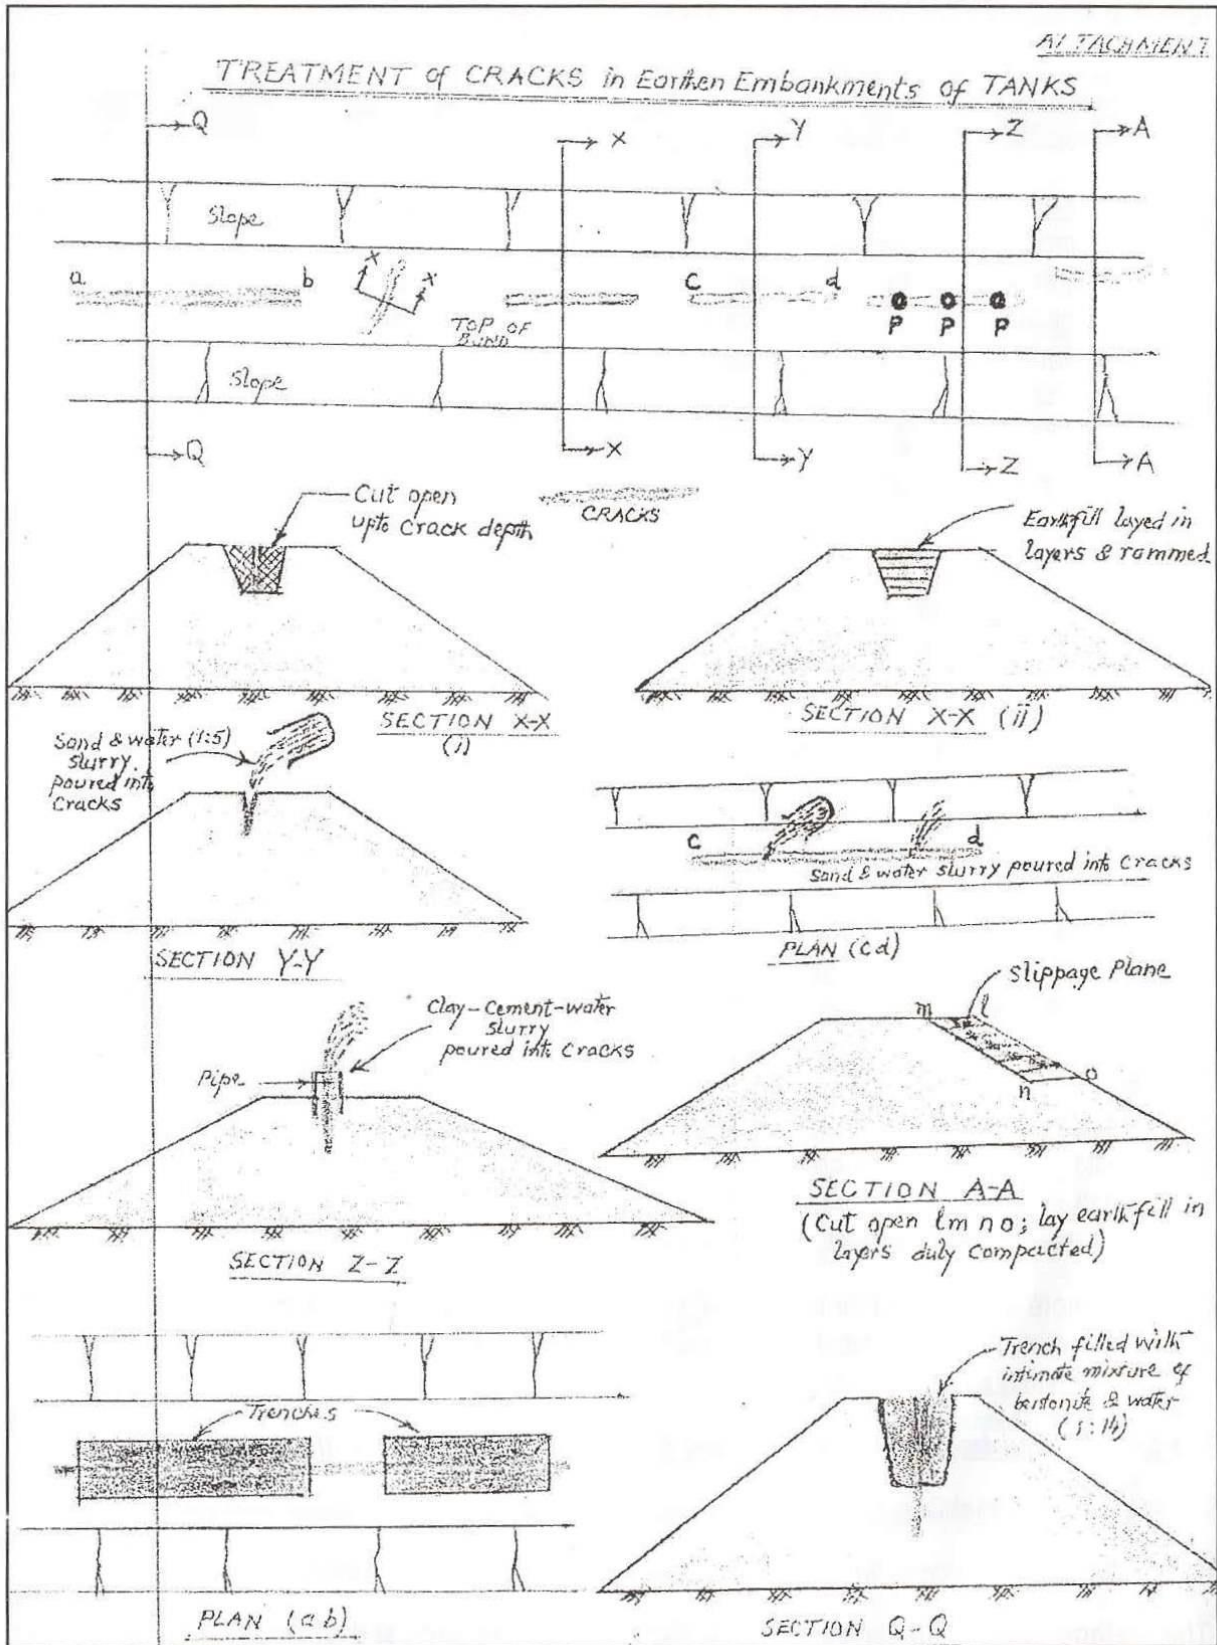 ATTACHMENT
TREATMENT of CRACKS in Earthen Embankments of TANKS
Q X Y Z A
Slope
a b X X c d
P P P
TOP OF
BUND
Slope
Q X Y Z A
Cut open
upto Crack depth
CRACKS
Earthfill layed in
layers & rammed
SECTION X-X
(i)
SECTION X-X (ii)
Sand & water (1:5)
slurry
poured into
Cracks
c d
Sand & water slurry poured into Cracks
SECTION Y-Y
PLAN (cd)
Clay-Cement-water
slurry
poured into Cracks
Pipe
Slippage Plane
m l
n o
SECTION Z-Z
SECTION A-A
(Cut open lm no; lay earthfill in
layers duly compacted)
Trenches
Trench filled with
intimate mixture of
bentonite & water
PLAN (ab)
SECTION Q-Q